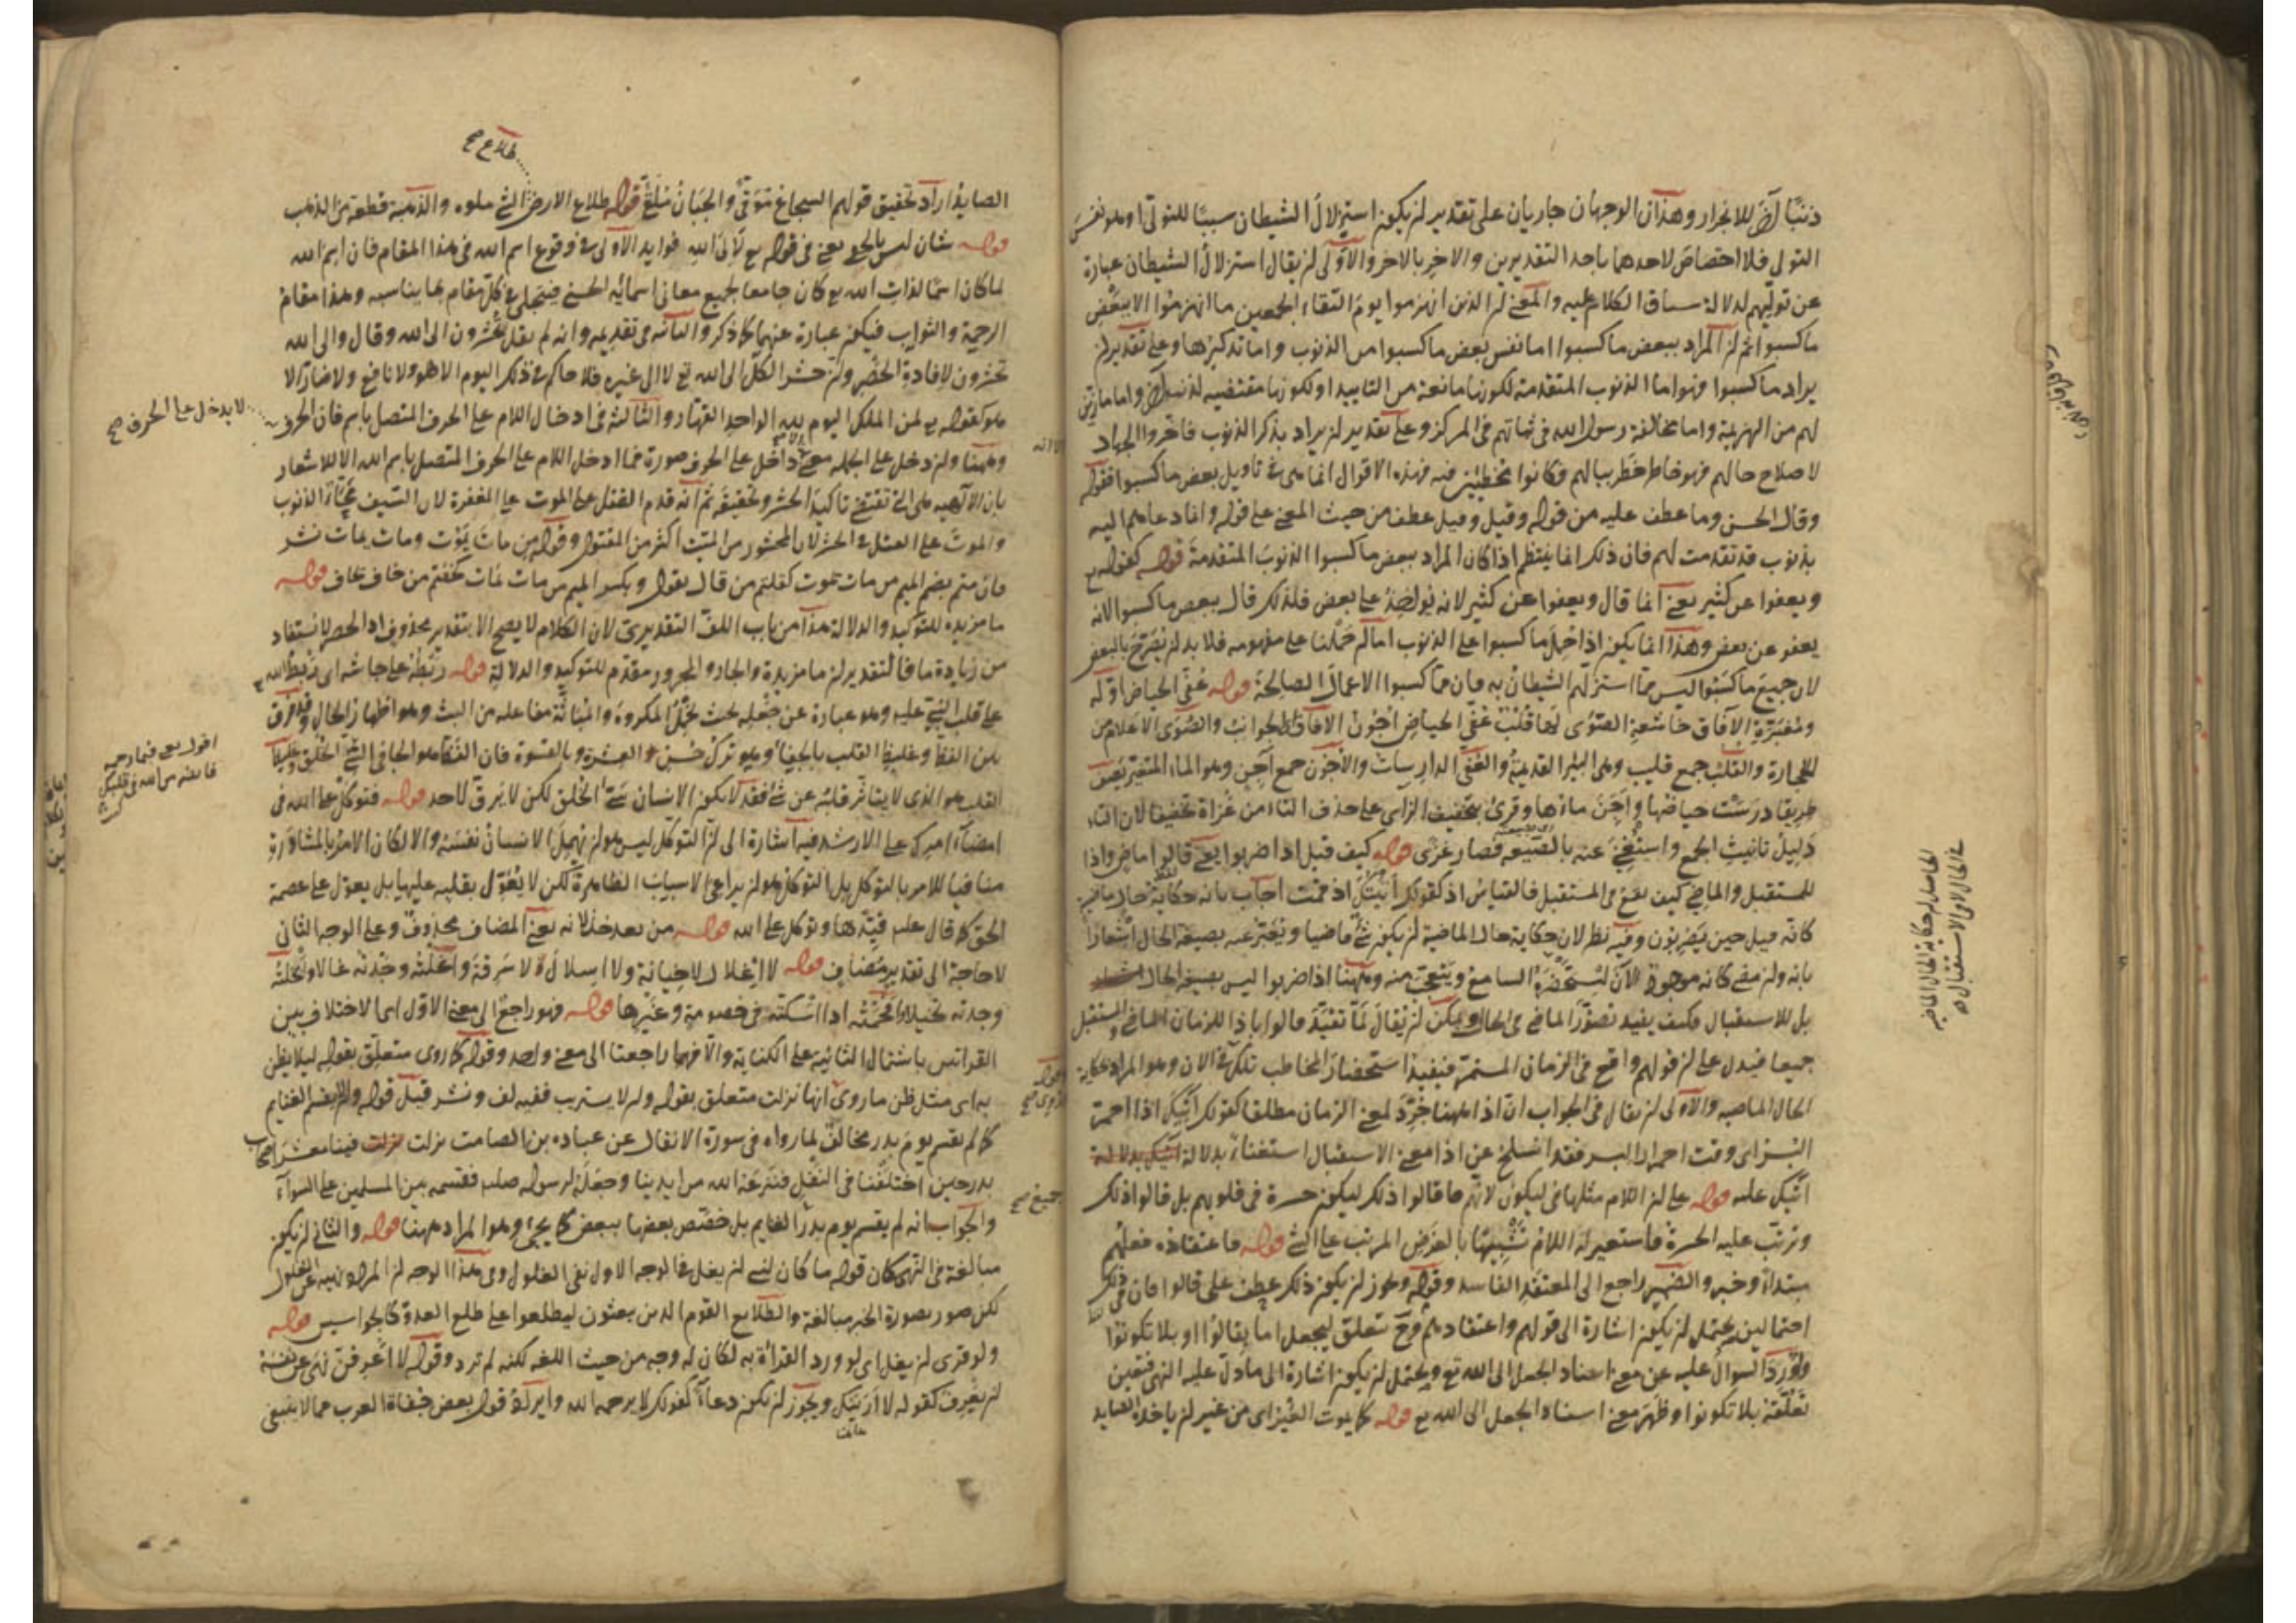 ذنبًا آخر للانجرار وهذان الوجهان جاريان على تقدير ان يكون استزلال الشيطان سببًا للتولى او هو نفس
التولى فلا اختصاص لاحدهما باحد التقديرين والاخر بالاخر والاولى ان يقال استزلال الشيطان عبارة
عن توليهم لدلالة سياق الكلام عليه والمعنى ان الذين انهزموا يوم التقاء الجمعين ما انهزموا الا ببعض
ما كسبوا ثم ان المراد ببعض ما كسبوا اما نفس بعض ما كسبوا من الذنوب واما تذكيرها وعلى تقدير ان
يراد ما كسبوا فهو اما الذنوب المتقدمة لكونها مانعة من التاييد او لكونها مقتضيه لذنب آخر واما ما زين
لهم من الهزيمة واما مخالفة رسول الله فى ثباتهم فى المركز وعلى تقدير ان يراد بذكر الذنوب فاخروا الجهاد
لاصلاح حالهم فهو خاطر خطر ببالهم فكانوا مخطئين فيه فهذه الاقوال انما هى فى تاويل بعض ما كسبوا فقوله
وقال الحسن وما عطف عليه من قوله وقيل وقيل عطف من حيث المعنى على قوله وانما دعاهم اليه
بذنوب قد تقدمت لهم فان ذلك انما ينتظم اذا كان المراد ببعض ما كسبوا الذنوب المتقدمة قوله كقوله تع
ويعفوا عن كثير يعنى انما قال ويعفوا عن كثير لانه يؤاخذ على بعض فلذلك قال ببعض ما كسبوا لانه
يعفو عن بعض وهذا انما يكون اذا حمل ما كسبوا على الذنوب اما لم حملنا على مفهومه فلا بد ان يصرح بالبعض
لان جميع ما كسبوا ليس مما استزلهم الشيطان به فان مما كسبوا الاعمال الصالحة قوله عفى الحياض اوله
ومغبرة الآفاق خاشعة الصوى لها قلب عفى الحياض اجون الآفاق الجوانب والصوى الاعلام من
الحجارة والقلب جمع قليب وهى البئر القديمة والعفى الدارسات والاجون جمع آجن وهو الماء المتغير يصف
طريقا درست حياضها واجن ماؤها وقرئ بتخفيف الزاى على حذف التاء من غزاة تخفيفا لان التاء
دليل تانيث الجمع واستغنى عنه بالصيغه فصار غزى قوله كيف قيل اذا ضربوا يعنى قالوا ماض واذا
للمستقبل والماضى كيف يقع فى المستقبل فالقياس اذ كقولك اتيتك اذ قمت اجاب بانه حكاية حال ماضية
كانه قيل حين يضربون وفيه نظر لان حكاية حال الماضية ان يكون شئ ماضيا ويعبر عنه بصيغة الحال اشعارا
بانه وان مضى كانه موجود الآن ليستحضره السامع ويتعجب منه وههنا اذا ضربوا ليس بصيغة الحال
بل للاستقبال فكيف يفيد تصور الماضى فى الحال ويمكن ان يقال لما تقيد قالوا باذا للزمان الماضى والمستقبل
جميعا فيدل على ان قولهم واقع فى الزمان المستمر فيفيد استحضار المخاطب تلك فى الآن وهو المراد بحكاية
الحال الماضيه والاولى ان يقال فى الجواب ان اذا ههنا جرد لمعنى الزمان مطلقا كقولك اتيك اذا احمر
البسر اى وقت احمرار البسر فقد انسلخ عن اذا معنى الاستقبال استغناء بدلالة
اتيك عليه قوله على ان اللام مثلها فى ليكون لانهم ما قالوا ذلك ليكون حسرة فى قلوبهم بل قالوا ذلك
وترتب عليه الحسرة فاستعير له اللام تشبيها بالغرض المرتب على الشئ قوله ما اعتقاده فعلهم
مبتداء وخبر والضمير راجع الى المعتقد الفاسد وقوله ويجوز ان يكون ذلك عطف على قالوا فان فى ذلك
احتمالين يحتمل ان يكون اشارة الى قولهم واعتقادهم وح تعلق ليجعل اما بقالوا او بلا تكونوا
واورد السوال عليه عن معنى اسناد الجعل الى الله تع ويحتمل ان يكون اشارة الى ما دل عليه النهى فتعين
تعلقه بلا تكونوا وظهر معنى اسناد الجعل الى الله تع قوله كما يموت العير اى من غير ان ياخذه العايد
الحاصل ان حكاية الحال الماضية
فى الحال لا فى الاستقبال
طلاع صح
الصايد اراد تحقيق قولهم الشجاع موقى والجبان ملقى قوله طلاع الارض الشئ ملوه والذهبة قطعة من الذهب
قوله شان ليس بالخفى يعنى فى قوله تع لالى الله فوايد الاولى فى وقوع اسم الله فى هذا المقام فان اسم الله
لما كان اسمًا لذات الله تع كان جامعا لجميع معانى اسمائه الحسنى فيتجلى فى كل مقام بما يناسبه وهذا مقام
الرحمة والثواب فيكون عبارة عنهما كما ذكر والثانية فى تقديمه وانه لم يقل تحشرون الى الله وقال والى الله
تحشرون لافادة الحصر وان حشر الكل الى الله تع لا الى غيره فلا حاكم فى ذلك اليوم الا هو ولا نافع ولا ضار الا
هو كقوله تع لمن الملك اليوم لله الواحد القهار والثالثة فى ادخال اللام على الحرف المتصل باسم فان الحرف
لا يدخل على الحرف صح
وههنا وان دخل على الجمله معنى داخل على الحرف صورة فما ادخل اللام على الحرف المتصل باسم الله الا للاشعار
بان الالهيه هى التى تقتضى تاكيد الحشر وتحقيقه ثم انه قدم القتل على الموت على المغفرة لان السيف محاء الذنوب
والموت على القتل فى الحشر لان المحشور من الميت اكثر من المقتول وقوله من مات يموت ومات يمات نشر
فان متم بضم الميم من مات يموت كقلتم من قال يقول وبكسر الميم من مات يمات كخفتم من خاف يخاف قوله
ما مزيده للتوكيد والدلالة هذا من باب اللف التقديرى لان الكلام لا يصح الا بتقدير محذوف اذ الحصر لا يستفاد
من زيادة ما فالتقدير ان ما مزيدة والجار والمجرور مقدم للتوكيد والدلالة قوله ربطه على جاشه اى ربط الله
على قلب النبى عليه وهو عبارة عن جعله بحيث يتحمل المكروه والمباثة مفاعله من البث وهو اظهار الحال وفرق
بين الفظ وغليظ القلب بالجفاء وهو ترك حسن العشرة وبالقسوة فان الفظ هو الجافى السئ الخلق وغليظ
القلب هو الذى لا يتاثر قلبه عن شئ فقد لا يكون الانسان سئ الخلق لكن لا يرق لاحد قوله فتوكل على الله فى
امضاء امرك على الارشد فيه اشارة الى ان التوكل ليس هو ان يهمل الانسان نفسه والا لكان الامر بالمشاورة
منافيا للامر بالتوكل بل التوكل هو ان يراعى الاسباب الظاهرة لكن لا يعول بقلبه عليها بل يعول على عصمة
الحق كما قال عليه قيدها وتوكل على الله قوله من بعد خذلانه يعنى المضاف محذوف وعلى الوجه الثانى
لا حاجة الى تقدير مضاف قوله لا اغلال لا خيانة ولا اسلال لا سرقة واغللته وجدته غالا وابخلته
وجدته بخيلا وافحمته اذا اسكته فى خصومة وغيرها قوله فهو راجع الى معنى الاول اى لا اختلاف بين
القرائتين باشتمال الثانية على الكناية والا فهما راجعتا الى معنى واحد وقوله كما روى متعلق بقوله ليلا يظن
به اى مثل ظن ما روى انها نزلت متعلق بقوله وان لا يستريب ففيه لف ونشر قيل قوله والم يقسم الغنايم
كما لم يقسم يوم بدر مخالف لما رواه فى سورة الانفال عن عباده بن الصامت نزلت فينا معشر اصحاب
بدر حين اختلفنا فى النفل فنزعه الله من ايدينا وجعله لرسوله صلعم فقسمه بين المسلمين على السواء
والجواب انه لم يقسم يوم بدر الغنايم بل خصص بعضها ببعض كما يجئ وهو المراد ههنا قوله والثانى ان يكون
مبالغة فى النهى كان قوله ما كان لنبى ان يغل فى الوجه الاول نفى الغلول وفى هذا الوجه ان المراد نهيه عن الغلول
لكن صور بصورة الخبر مبالغة والطلايع القوم الذين يبعثون ليطلعوا على طلع العدو كالجواسيس قوله
ولو قرى ان يغل اى لو ورد القراءة به لكان له وجه من حيث اللغه لكنه لم ترد وقوله لا اعرفن نهى عن نفسه
ان يعرف كقوله لا ارينك ويجوز ان يكون دعاء كقولك لا يرحمه الله وايراده قول بعض جفاة العرب مما لا ينبغى